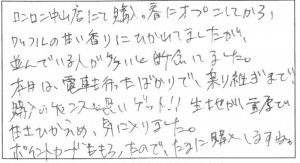 ロンロン中山店にて購入。春にオープンしてから、
ワッフルの甘い香りにひかれてましたが、
並んでいる人が多いと断念してました。
本日は、電車も行ったばかりで、乗り継ぎまで
購入のチャンスと思いゲット!! 生地が重厚で
甘さひかえめ、気に入りました。
ポイントカードももらったので、たまに購入しますね。